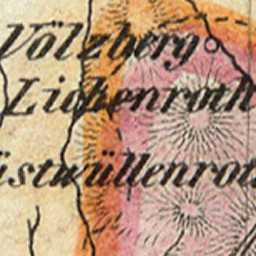 Völzberg
Lichenroth
üstwüllenrot